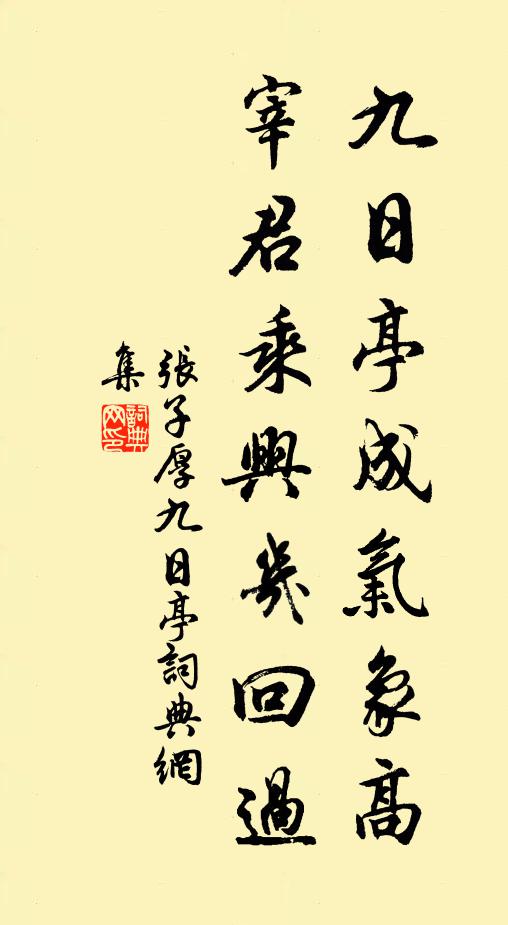 九日亭成氣象高
宰君乘興幾回過
張子厚九日亭詞典網
集
詞典
网印